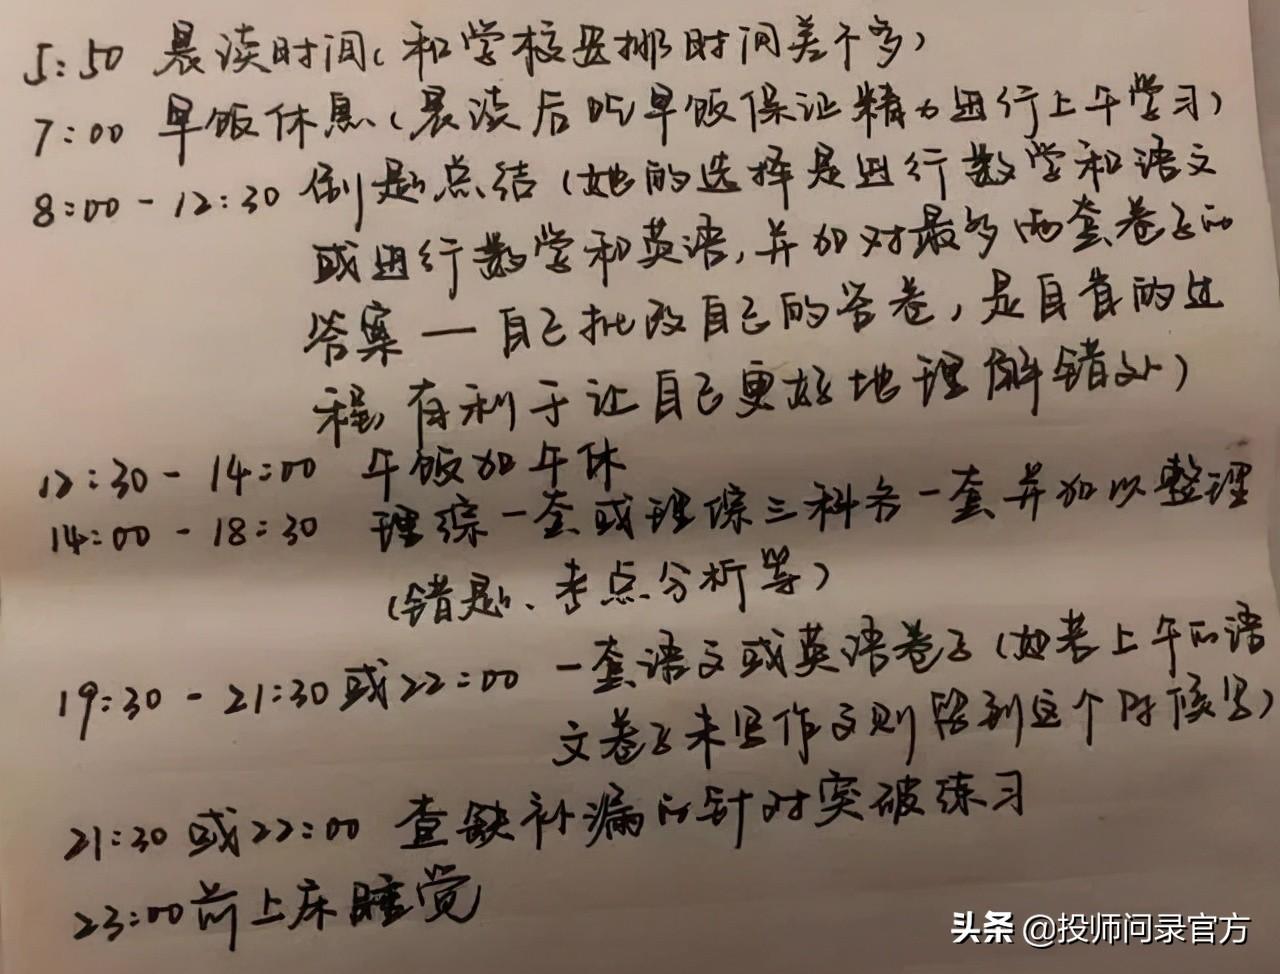 5:50 晨读时间(和学校安排时间差不多)
7:00 早饭休息(晨读后吃早饭保证精力进行上午学习)
8:00-12:30 刷题总结(她的选择是进行数学和语文
或进行数学和英语,并加对最多两套卷子的
答案—自己批改自己的答卷,是自省的过
程,有利于让自己更好地理解错处)
12:30-14:00 午饭加午休
14:00-18:30 理综一套或理综三科各一套并加以整理
(错题、考点分析等)
19:30-21:30或22:00 一套语文或英语卷子(如若上午的语
文卷子未写作文则留到这个时候写)
21:30或22:00 查缺补漏的针对突破练习
23:00前上床睡觉
头条 @投师问录官方